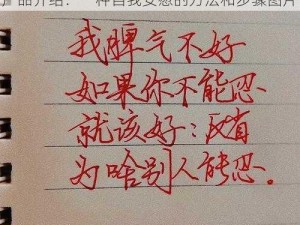 品介绍：一种自我安慰的方法和步骤图片
我脾气不好
如果你不能忍
就该好：反省
为啥别人能忍。